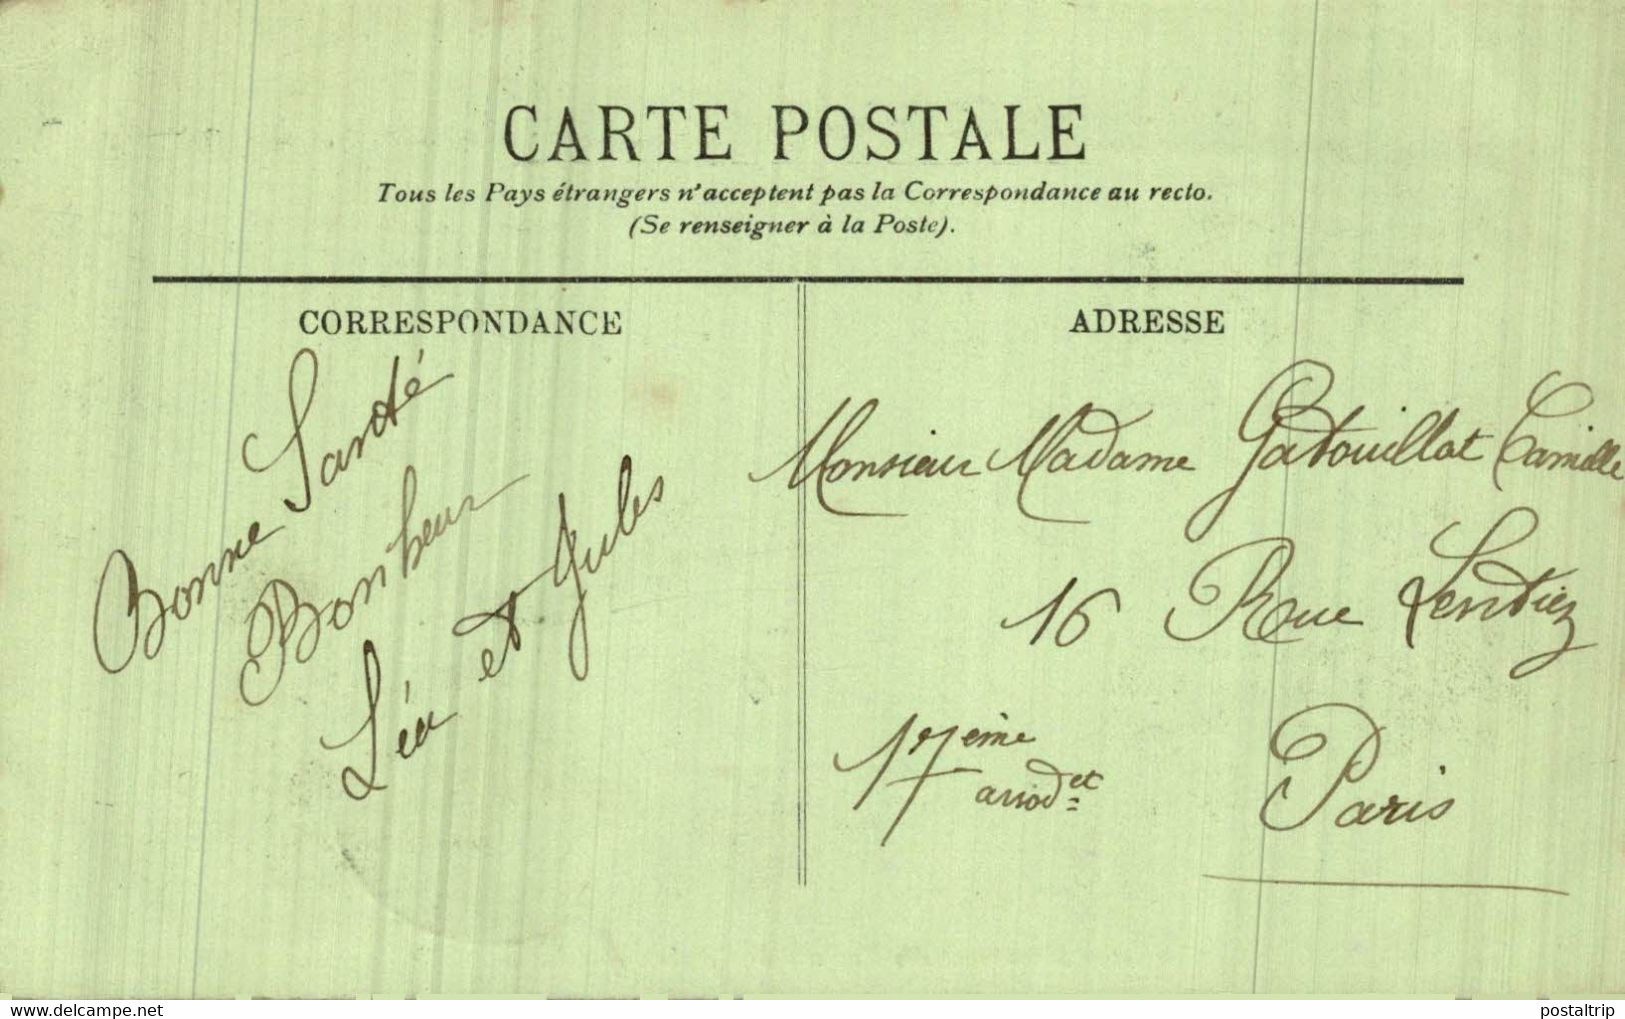 CARTE POSTALE
Tous les Pays étrangers n'acceptent pas la Correspondance au recto.
(Se renseigner à la Poste).
CORRESPONDANCE
Bonne Santé
Bonheur
Léa et Jules
ADRESSE
Monsieur Madame Gatouillat Camille
16 Rue
17eme
Paris
www.delcampe.net
postaltrip